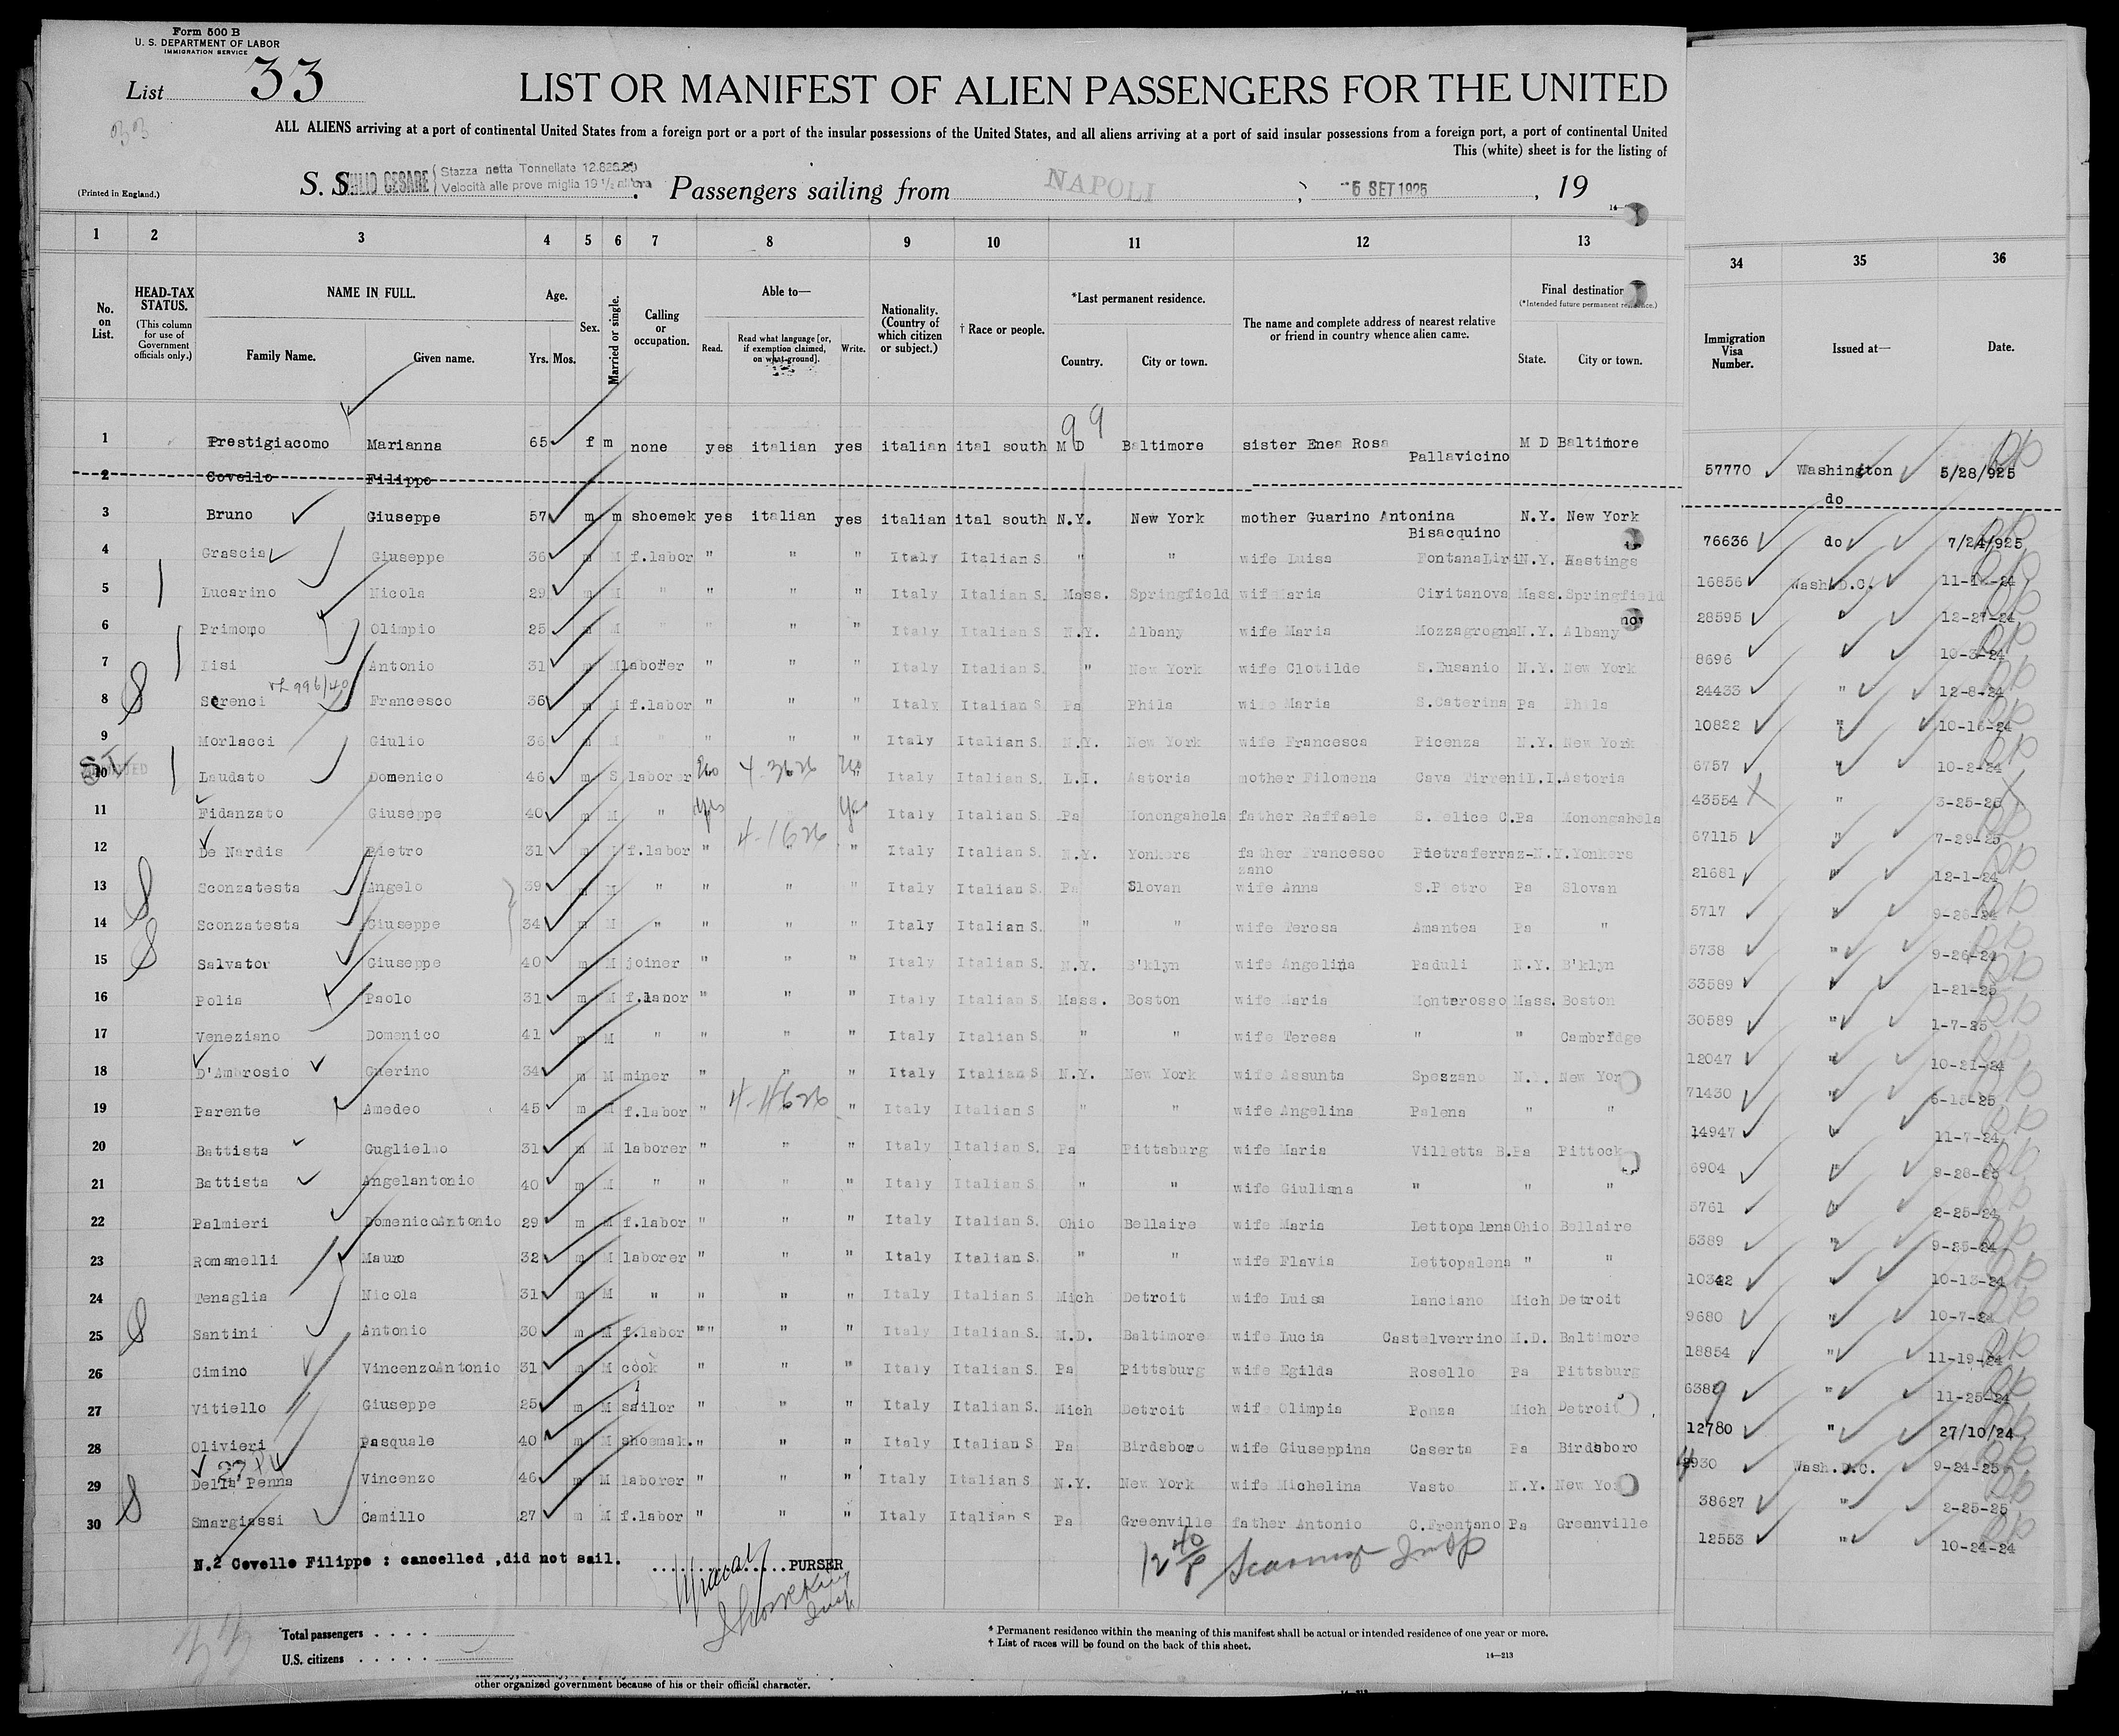 Form 500 B
U. S. DEPARTMENT OF LABOR
IMMIGRATION SERVICE
List 33
33
LIST OR MANIFEST OF ALIEN PASSENGERS FOR THE UNITED
ALL ALIENS arriving at a port of continental United States from a foreign port or a port of the insular possessions of the United States, and all aliens arriving at a port of said insular possessions from a foreign port, a port of continental United
This (white) sheet is for the listing of
(Printed in England.)
S. S. CESARE Stazza netta Tonnellate
Velocità alle prove miglia 19 1/2
Passengers sailing from NAPOLI, 5 SET 1925, 19
1 2 3 4 5 6 7 8 9 10 11 12 13 34 35 36
No. on List.
HEAD-TAX STATUS.
(This column for use of Government officials only.)
NAME IN FULL.
Family Name. Given name.
Age.
Yrs. Mos.
Sex.
Married or single.
Calling or occupation.
Able to—
Read. Read what language [or, if exemption claimed, on what ground]. Write.
Nationality. (Country of which citizen or subject.)
† Race or people.
*Last permanent residence.
Country. City or town.
The name and complete address of nearest relative or friend in country whence alien came.
Final destination
(*Intended future permanent residence.)
State. City or town.
Immigration Visa Number.
Issued at—
Date.
99
1 Prestigiacomo Marianna 65 f m none yes italian yes italian ital south M D Baltimore sister Enea Rosa Pallavicino M D Baltimore 57770 Washington 5/28/925
2 Covello Filippo do
3 Bruno Giuseppe 57 m m shoemek yes italian yes italian ital south N.Y. New York mother Guarino Antonina Bisacquino N.Y. New York 76636 do 7/24/925
4 Grascia Giuseppe 36 m M f.labor " " " Italy Italian S. " " wife Luisa FontanaLiri N.Y. Hastings 16856 Wash.D.C.
5 Lucarino Nicola 29 m M " " " " Italy Italian S. Mass. Springfield wife Maria Civitanova Mass. Springfield 28595 12-27-24
6 Primomo Olimpio 25 m M " " " " Italy Italian S. N.Y. Albany wife Maria Mozzagrogna N.Y. Albany 8696 10-3-24
7 Iisi Antonio 31 m M laborer " " " Italy Italian S. " New York wife Clotilde S.Eusanio N.Y. New York 24433 " 12-8-24
8 Serenci Francesco 36 m M f.labor " " " Italy Italian S. Pa Phila wife Maria S.Caterina Pa Phila 10822 " 10-16-24
9 Morlacci Giulio 36 m M " " " " Italy Italian S. N.Y. New York wife Francesca Picenza N.Y. New York 6757 " 10-2-24
SI
10 Laudato Domenico 46 m S laborer No 4-3626 No Italy Italian S. L.I. Astoria mother Filomena Cava Tirreni L.I. Astoria 43554 " 3-25-25
11 Fidanzato Giuseppe 40 m M " yes " yes Italy Italian S. Pa Monongahela father Raffaele S. elice C. Pa Monongahela 67115 " 7-29-25
12 De Nardis Pietro 31 m f.labor " 4-1626 " Italy Italian S. N.Y. Yonkers father Francesco Pietraferraz-zano N.Y. Yonkers 21681 " 12-1-24
13 Sconzatesta Angelo 39 m M " " " " Italy Italian S. Pa Slovan wife Anna S.Pietro Pa Slovan 5717 "
14 Sconzatesta Giuseppe 34 m M " " " " Italy Italian S. " " wife Teresa Amantea Pa " 5738 " 9-26-24
15 Salvator Giuseppe 40 m M joiner " " " Italy Italian S. N.Y. B'klyn wife Angelina Paduli N.Y. B'klyn 33589 " 1-21-25
16 Polia Paolo 31 m M f.lanor " " " Italy Italian S. Mass. Boston wife Maria Monterosso Mass. Boston 30589 " 1-7-25
17 Veneziano Domenico 41 m M " " " " Italy Italian S. " " wife Teresa " " Cambridge 12047 " 10-21-24
18 D'Ambrosio Guerino 34 m M miner " " " Italy Italian S. N.Y. New York wife Assunta Spezzano N.Y. New York 71430 " 6-15-25
19 Parente Amedeo 45 m M f.labor " 4-4626 " Italy Italian S " " wife Angelina Palena " " 14947 " 11-7-24
20 Battista Guglielmo 31 m M laborer " " " Italy Italian S. Pa Pittsburg wife Maria Villetta B. Pa Pittock 6904 "
21 Battista Angelantonio 40 m M " " " " Italy Italian S. " " wife Giuliana " " " 5761 " 2-25-24
22 Palmieri DomenicoAntonio 29 m M f.labor " " " Italy Italian S. Ohio Bellaire wife Maria Lettopalena Ohio Bellaire 5389 " 9-25-24
23 Romanelli Mauro 32 m M laborer " " " Italy Italian S. " " wife Flavia Lettopalena " " 10342 " 10-13-24
24 Tenaglia Nicola 31 m M " " " " Italy Italian S. Mich Detroit wife Luisa Lanciano Mich Detroit 9680 " 10-7-24
25 Santini Antonio 30 m M f.labor "" " " Italy Italian S. M.D. Baltimore wife Lucia Castelverrino M.D. Baltimore 18854 " 11-19-24
26 Cimino VincenzoAntonio 31 m M cook " " " Italy Italian S. Pa Pittsburg wife Egilda Rosello Pa Pittsburg 6389 " 11-25-24
27 Vitiello Giuseppe 25 m M sailor " " " Italy Italian S. Mich Detroit wife Olimpia Ponza Mich Detroit 12780 " 27/10/24
28 Olivieri Pasquale 40 m M shoemak. " " " Italy Italian S Pa Birdsboro wife Giuseppina Caserta Pa Birdsboro 4930 Wash.D.C. 9-24-25
29 Della Penna Vincenzo 46 m M laborer " " " Italy Italian S N.Y. New York wife Michelina Vasto N.Y. New York 38627 " 2-25-25
30 Smargiassi Camillo 27 m M f.labor " " " Italy Italian S Pa Greenville father Antonio C.Frentano Pa Greenville 12553 " 10-24-24
N.2 Covello Filippo : cancelled ,did not sail. PURSER
Total passengers . . . .
U.S. citizens . . . . .
* Permanent residence within the meaning of this manifest shall be actual or intended residence of one year or more.
† List of races will be found on the back of this sheet.
14—213
other organized government because of his or their official character.